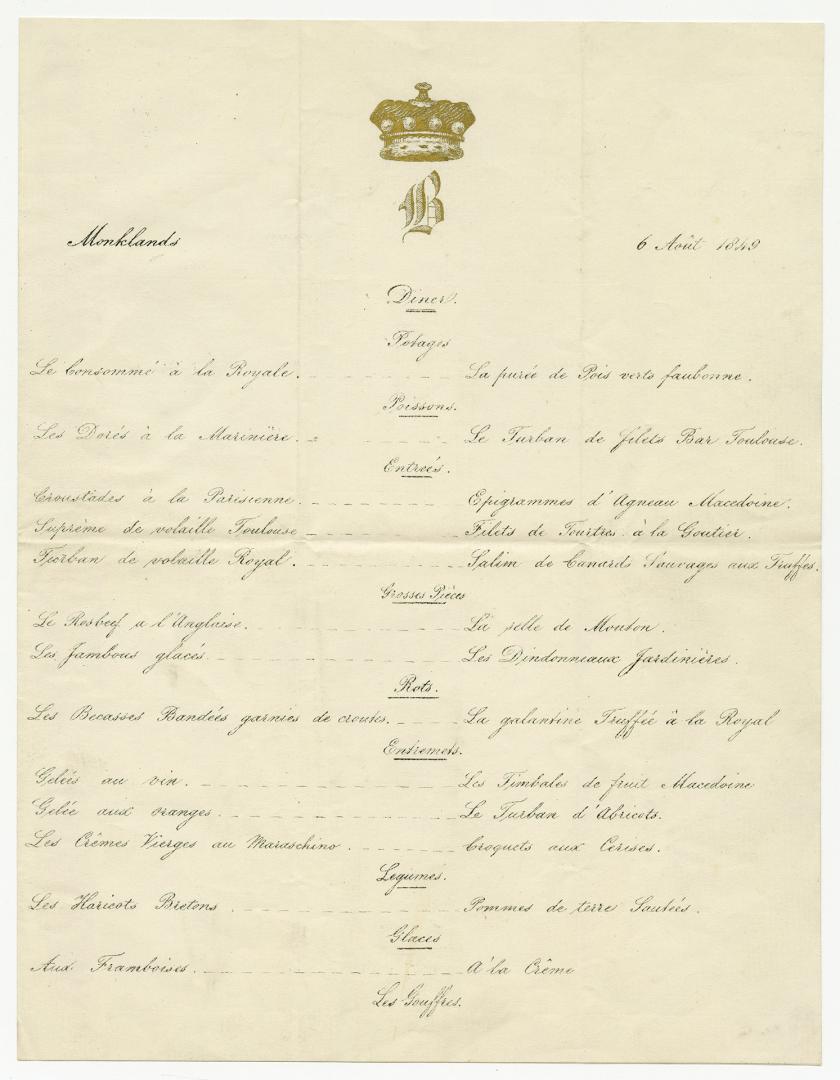 B
Monklands 6 Août 1849
Diner.
Potages
Le Consommé à la Royale. La purée de Pois verts faubonne.
Poissons.
Les Dorés à la Marinière. Le Turban de filets Bar Toulouse.
Entrées.
Croustades à la Parisienne. Epigrammes d'Agneau Macedoine.
Suprème de volaille Toulouse Filets de Tourtres à la Goutier.
Turban de volaille Royal. Salim de Canards Sauvages aux Truffes.
Grosses Pièces
Le Rosbeef a l'Anglaise. La selle de Mouton.
Les Jambons glacés Les Dindonneaux Jardinières.
Rots.
Les Becasses Bandées garnies de croutes. La galantine Truffée à la Royal
Entremets.
Gelées au vin. Les Timbales de fruit Macedoine
Gelée aux oranges. Le Turban d'Abricots.
Les Crêmes Vierges au Maraschino. Croquets aux Cerises.
Legumes.
Les Haricots Bretons Pommes de terre Sautées.
Glaces
Aux Framboises. A la Crême
Les Gouffres.